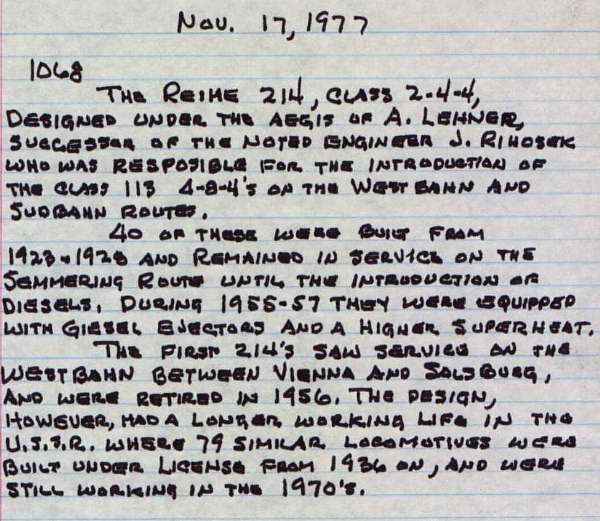 Nov. 17, 1977
1068
The Reihe 214, class 2-4-4,
designed under the aegis of A. Lehner,
successor of the noted engineer J. Rihosek
who was resposible for the introduction of
the class 113 4-8-4's on the West bahn and
Sudbahn routes.
40 of these were built from
1923-1928 and remained in service on the
Semmering route until the introduction of
diesels. During 1955-57 they were equipped
with Giesel ejectors and a higher superheat.
The first 214's saw service on the
Westbahn between Vienna and Salsburg,
and were retired in 1956. The design,
however, had a longer working life in the
U.S.S.R. where 79 similar locomotives were
built under license from 1936 on, and were
still working in the 1970's.